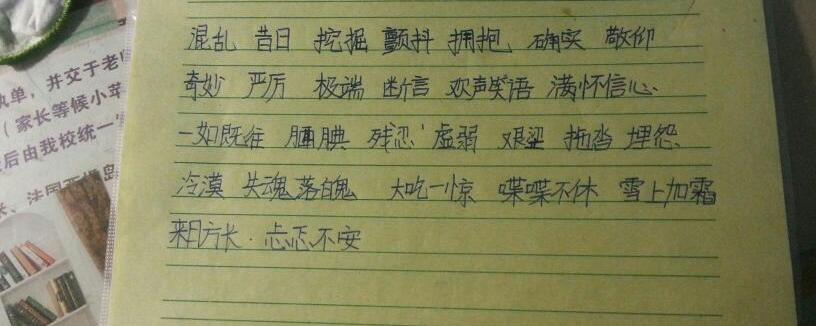 混乱 昔日 挖掘 颤抖 拥抱 确实 敬仰
奇妙 严厉 极端 断言 欢声笑语 满怀信心.
一如既往 腼腆 残忍 虚弱 拖沓 埋怨.
冷漠 失魂落魄 大吃一惊 喋喋不休 雪上加霜
来日方长. 忐忑不安
单，并交于老
（家长等候小苹
后由我校统一
法国